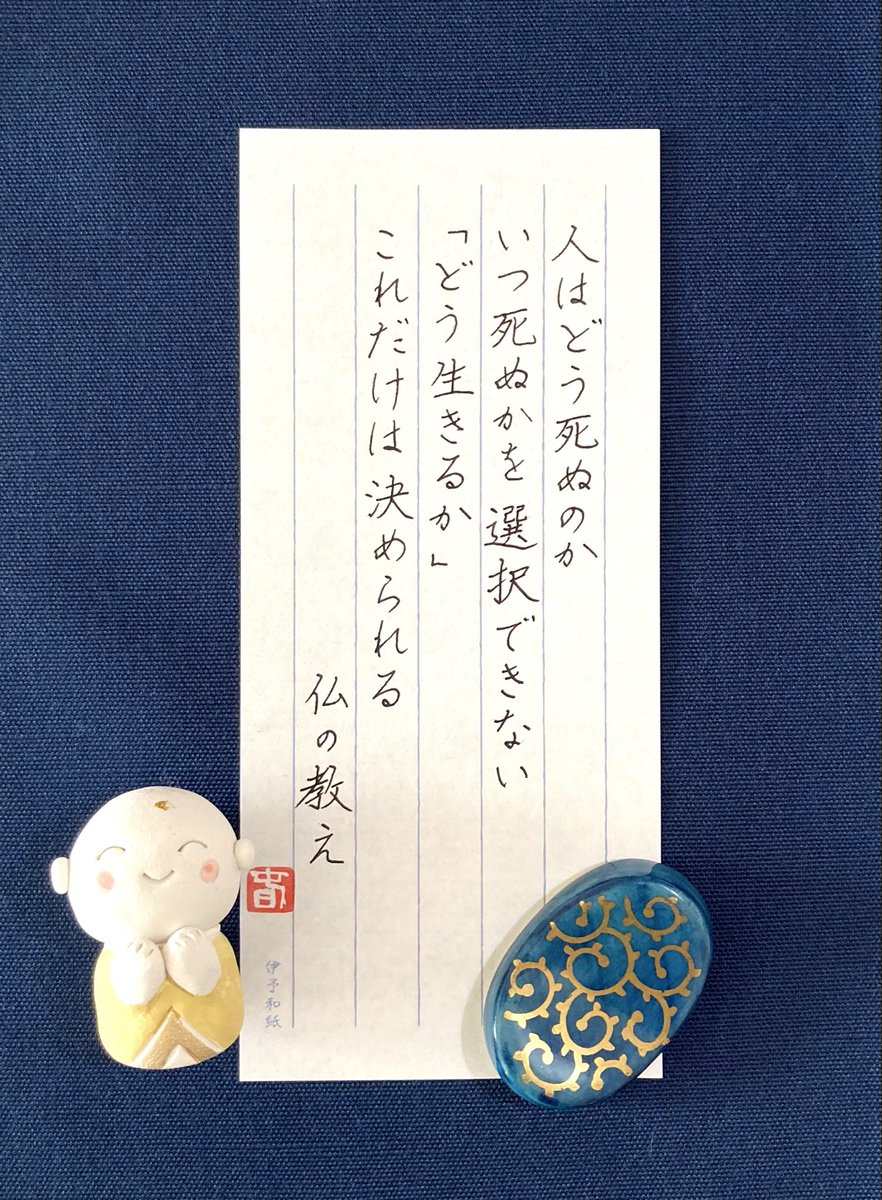 人はどう死ぬのか
いつ死ぬかを選択できない
「どう生きるか」
これだけは決められる
仏の教え
伊予和紙